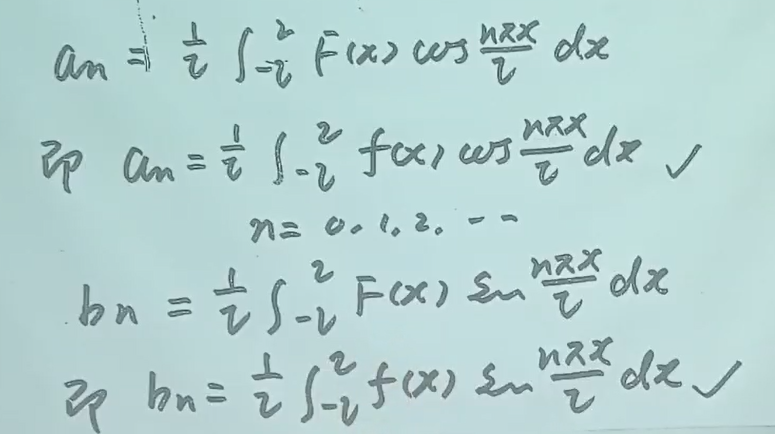 aₙ = 1/l ∫₋ₗˡ F(x) cos nπx/l dx
即 aₙ = 1/l ∫₋ₗˡ f(x) cos nπx/l dx ✓
n = 0, 1, 2, --
bₙ = 1/l ∫₋ₗˡ F(x) sin nπx/l dx
即 bₙ = 1/l ∫₋ₗˡ f(x) sin nπx/l dx ✓